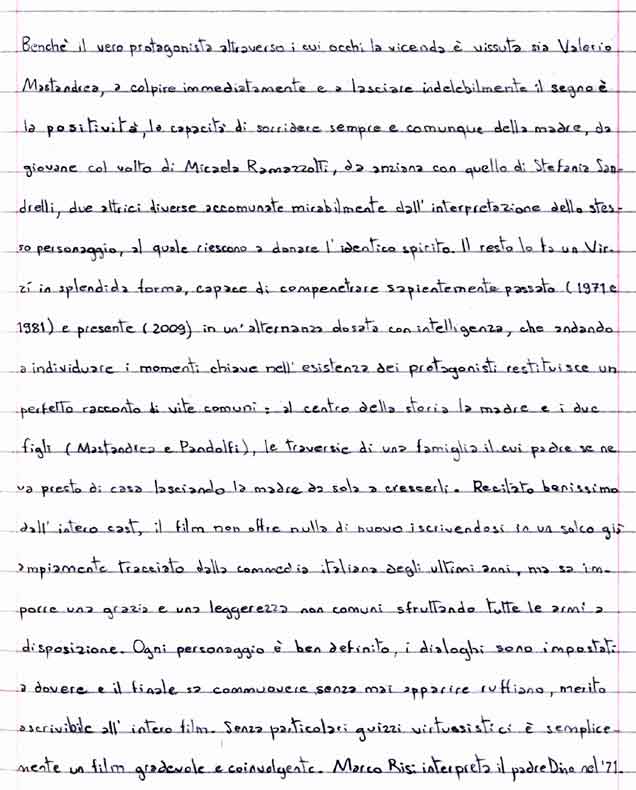 Benchè il vero protagonista attraverso i cui occhi la vicenda è vissuta sia Valerio
Mastandrea, a colpire immediatamente e a lasciare indelebilmente il segno è
la positività, la capacità di sorridere sempre e comunque della madre, da
giovane col volto di Micaela Ramazzotti, da anziana con quello di Stefania San-
drelli, due attrici diverse accomunate mirabilmente dall'interpretazione dello stes-
so personaggio, al quale riescono a donare l'identico spirito. Il resto lo fa un Vir-
zí in splendida forma, capace di compenetrare sapientemente passato (1971 e
1981) e presente (2009) in un'alternanza dosata con intelligenza, che andando
a individuare i momenti chiave nell'esistenza dei protagonisti restituisce un
perfetto racconto di vite comuni: al centro della storia la madre e i due
figli (Mastandrea e Pandolfi), le traversie di una famiglia il cui padre se ne
va presto di casa lasciando la madre da sola a crescerli. Recitato benissimo
dall'intero cast, il film non offre nulla di nuovo iscrivendosi in un solco già
ampiamente tracciato dalla commedia italiana degli ultimi anni, ma sa im-
porre una grazia e una leggerezza non comuni sfruttando tutte le armi a
disposizione. Ogni personaggio è ben definito, i dialoghi sono impostati
a dovere e il finale sa commuovere senza mai apparire ruffiano, merito
ascrivibile all'intero film. Senza particolari guizzi virtuosistici è semplice-
mente un film gradevole e coinvolgente. Marco Risi interpreta il padre Dino nel '71.